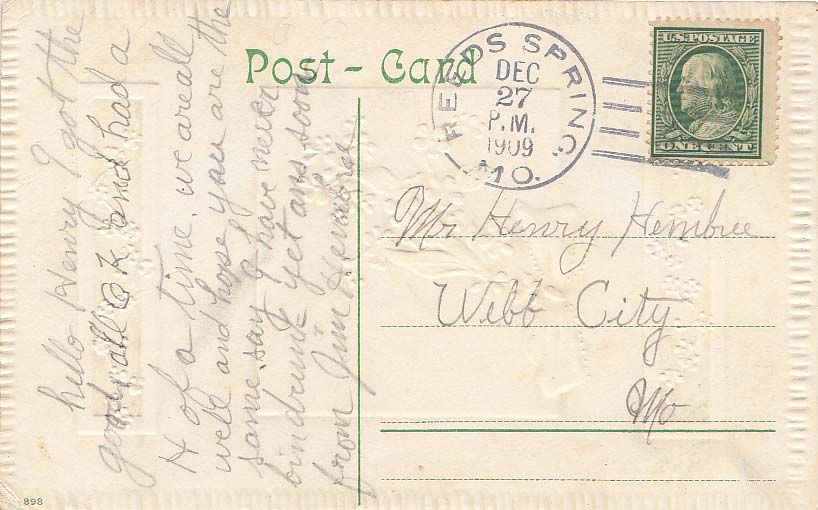 Post - Card
REEDS SPRING,
DEC
27
P.M.
1909
MO.
U.S. POSTAGE
ONE CENT
hello Henry I got the
goods all O K and had a
H of a time. we are all
well and hope you are the
same. say I have never
bin drunk yet ans soon
from Jim Hembree
Mr Henry Hembree
Webb City
Mo
898